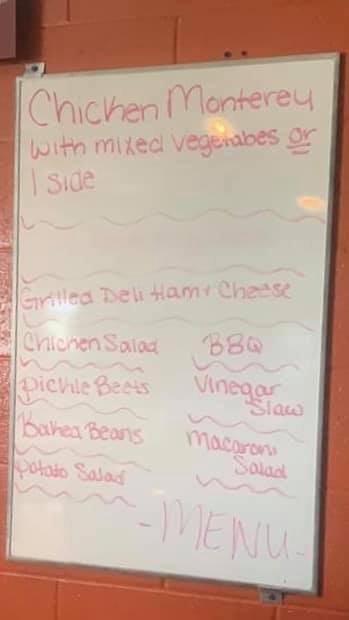 Chicken Monterey
with mixed vegetabes or
1 side
Grilled Deli Ham + Cheese
Chicken Salad
BBQ
Pickle Beets
Vinegar
Slaw
Baked Beans
Macaroni
Salad
Potato Salad
-MENU-